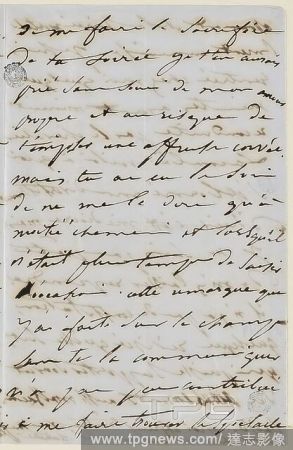 de me faire le sacrifice
de ta soirée je t'en aurais
prié sans souci de mon amour
propre et au risque de
t'imposer une affreuse corvée
mais tu as eu le soin
de ne me le dire qu'à
moitié chemin et lorsqu'il
n'était plus temps de saisir
l'occasion. cette remarque que
j'ai faite sur le champ
sans te la communiquer
n'a pas peu contribué
à me faire trouver le spectacle
TPG
www.tpgnews.com / 達志影像